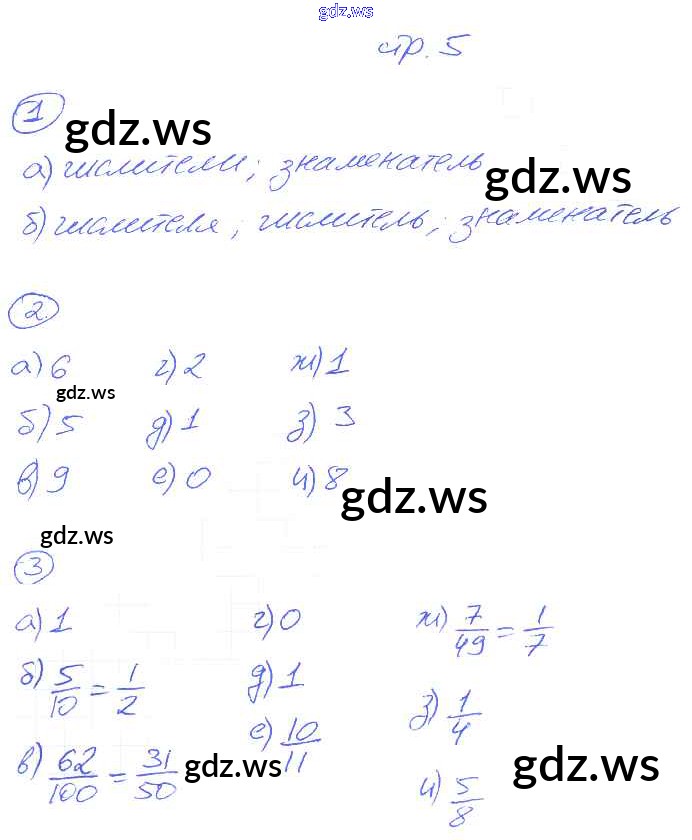 gdz.ws
стр. 5
1
gdz.ws
а) числители; знаменатель
gdz.ws
б) числителя; числитель; знаменатель
2
а) 6 г) 2 ж) 1
gdz.ws
б) 5 д) 1 з) 3
в) 9 е) 0 и) 8
gdz.ws
gdz.ws
3
а) 1 г) 0 ж) 7/49 = 1/7
б) 5/10 = 1/2 д) 1 з) 1/4
в) 62/100 = 31/50 е) 10/11 и) 5/8
gdz.ws
gdz.ws